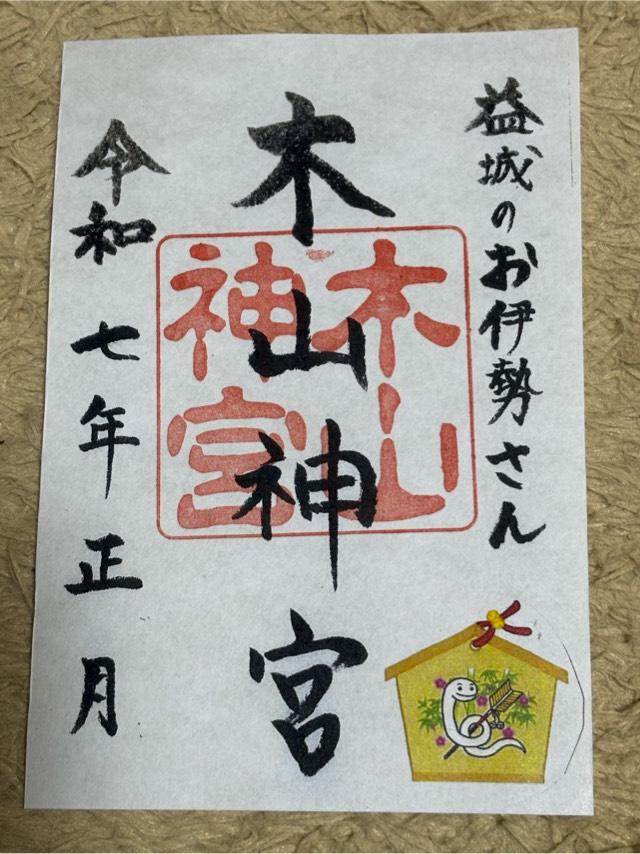 益城のお伊勢さん
木山神宮
木山
神宮
令和七年正月